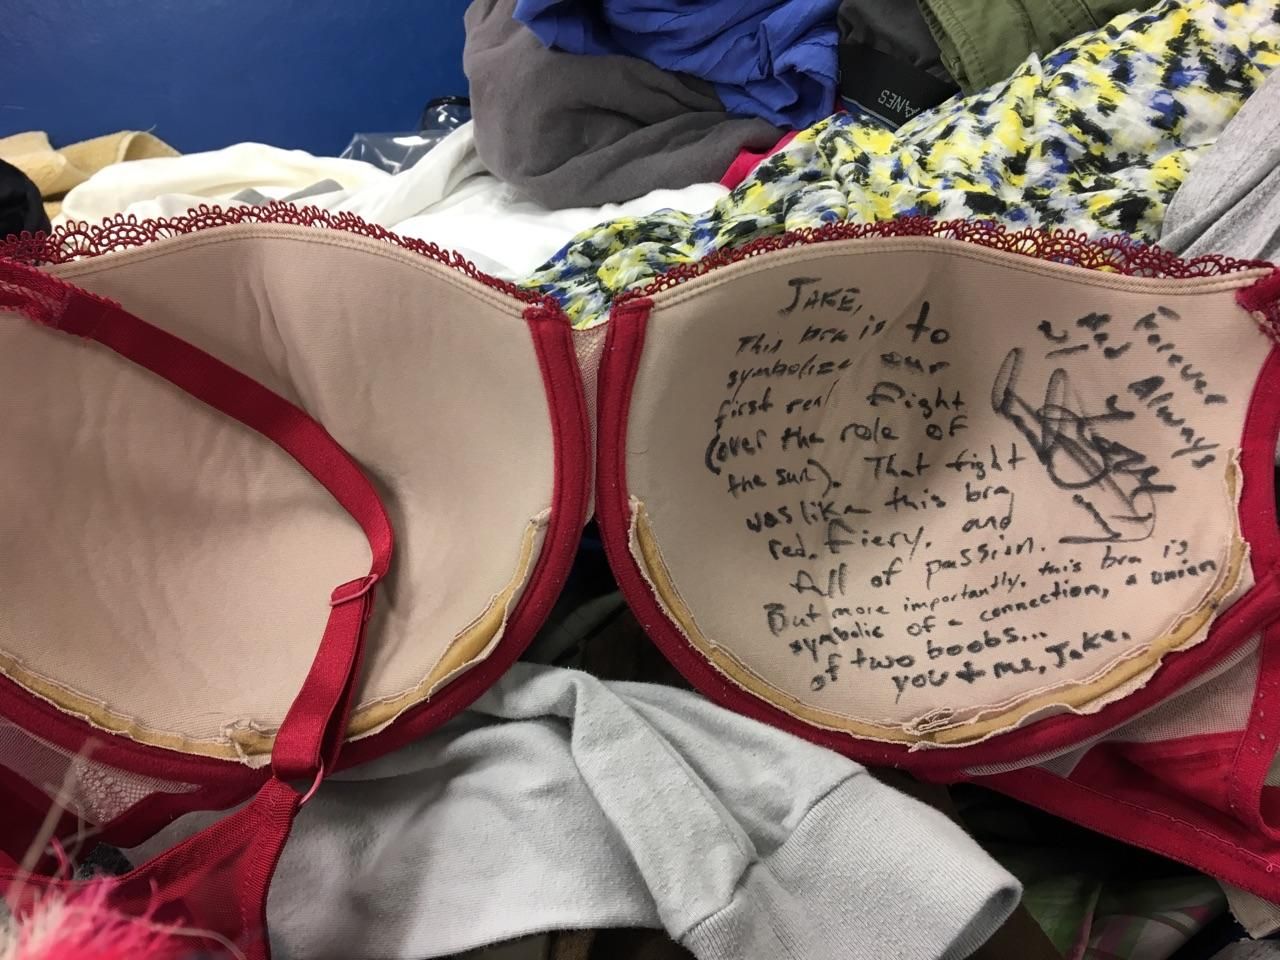 JAKE,
This bra is to
symbolize our
first real fight
(over the role of
the sun). That fight
was like this bra
red, fiery, and
full of passion.
But more importantly, this bra is
symbolic of a connection, a union
of two boobs...
you + me, Jake.
Forever
Always
ANES